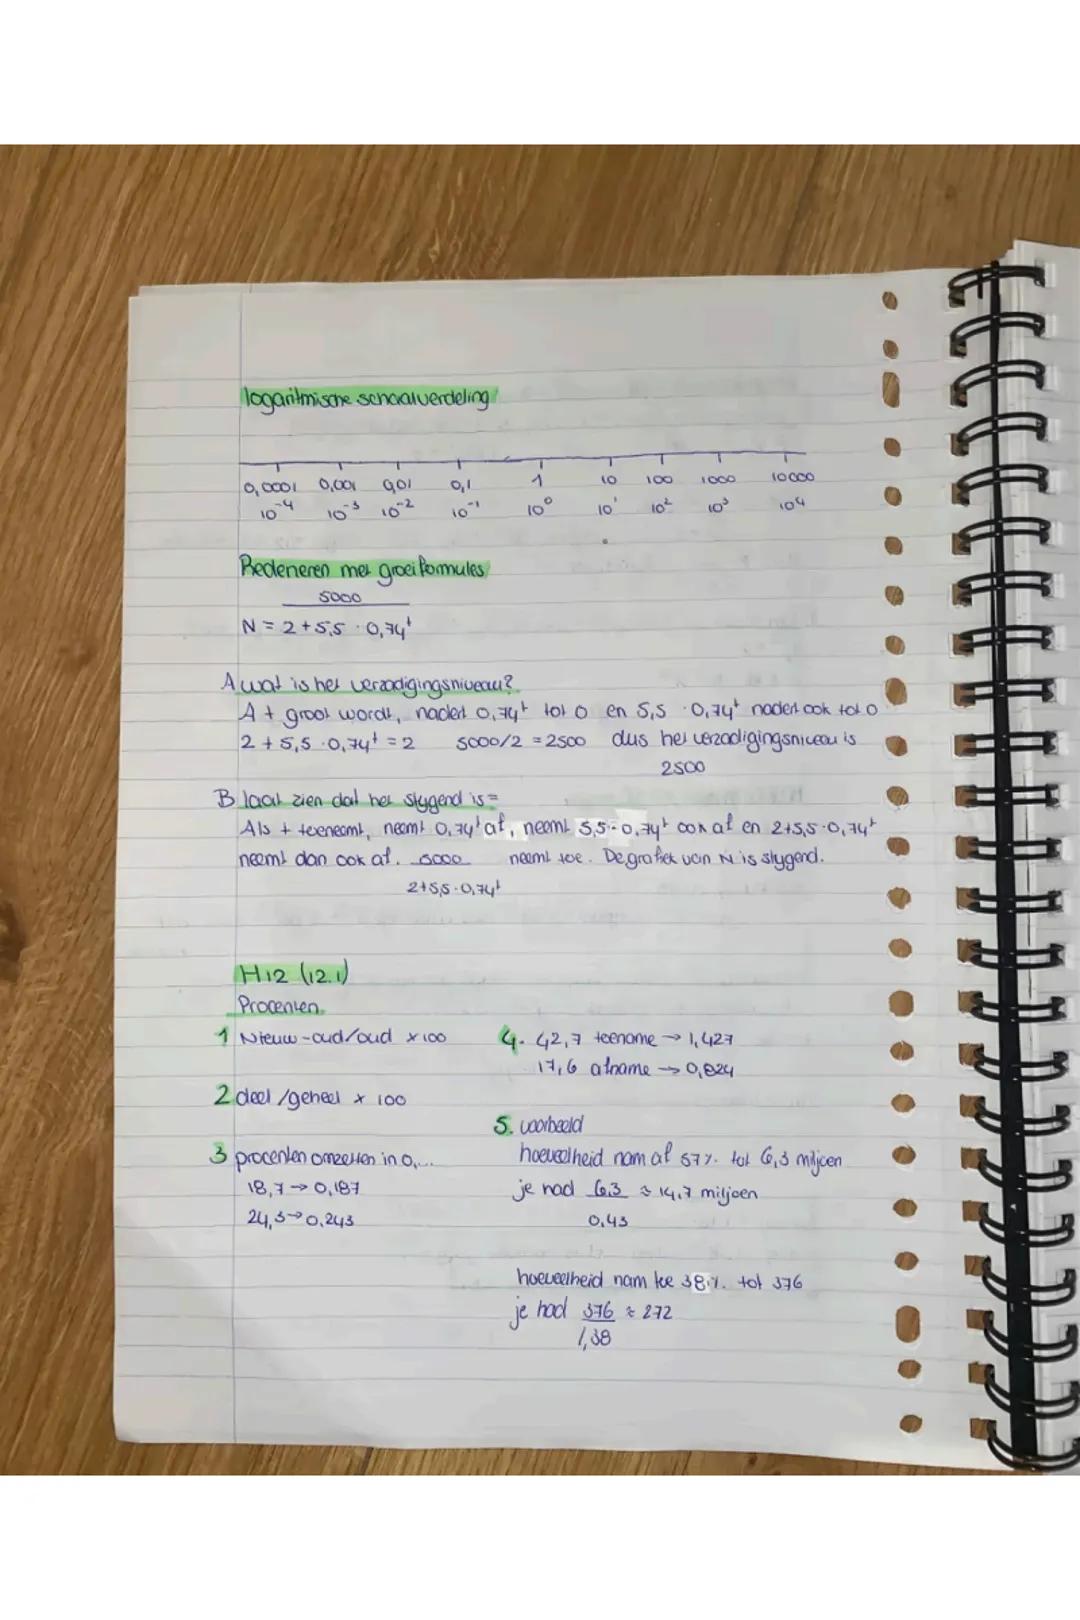 logaritmische schaalverdeling
0,0001 0,001 0,01 0,1 1 10 100 1000 10000
10⁻⁴ 10⁻³ 10⁻² 10⁻¹ 10⁰ 10¹ 10² 10³ 10⁴
Redeneren met groeiformules
5000
N = 2+5,5 · 0,74ᵗ
A wat is het verzadigingsniveau?
A t groot wordt, nadert 0,74ᵗ tot 0 en 5,5 · 0,74ᵗ nadert ook tot 0
2 + 5,5 · 0,74ᵗ = 2 5000/2 = 2500 dus het verzadigingsniveau is
2500
B laat zien dat het stygend is =
Als t toeneemt, neemt 0,74ᵗ af, neemt 5,5 · 0,74ᵗ ook af en 2+5,5·0,74ᵗ
neemt dan ook af. 5000 neemt toe. De grafiek van N is stygend.
2+5,5·0,74ᵗ
H12 (12.1)
Procenten
1 Nieuw-oud/oud × 100
2 deel/geheel × 100
3 procenten omzetten in 0,...
18,7 → 0,187
24,3 → 0,243
4. 42,7 toename → 1,427
17,6 afname → 0,824
5. voorbeeld
hoeveelheid nam af 57% tot 6,3 miljoen
je had 6,3 ≈ 14,7 miljoen
0,43
hoeveelheid nam toe 38% tot 376
je had 376 ≈ 272
1,38